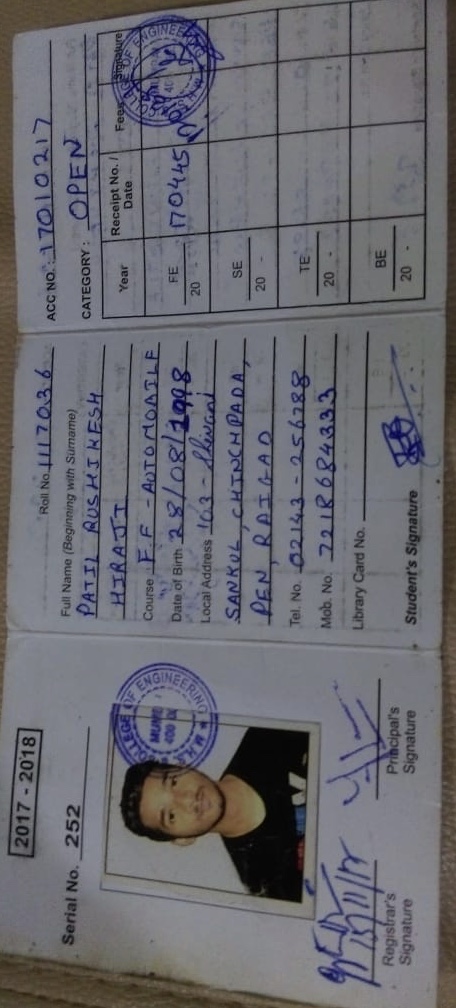 2017 - 2018
Serial No. 252
COLLEGE OF ENGINEERING
Registrar's
Signature
Principal's
Signature
Roll No 1117036
Full Name (Beginning with Surname)
PATIL RUSHIKESH
HIRAJI
Course F.E - AUTOMOBILE
Date of Birth 28/08/1998
Local Address 103 - Shivani
SANKUL, CHINCHPADA,
PEN, RAIGAD
Tel. No. 02143-256788
Mob. No. 7218684333
Library Card No.
Student's Signature
ACC NO. : 17010217
CATEGORY : OPEN
Year Receipt No. / Date Fees Signature
FE 20 170445
SE 20 -
TE 20 -
BE 20 -
COLLEGE OF ENGINEERING